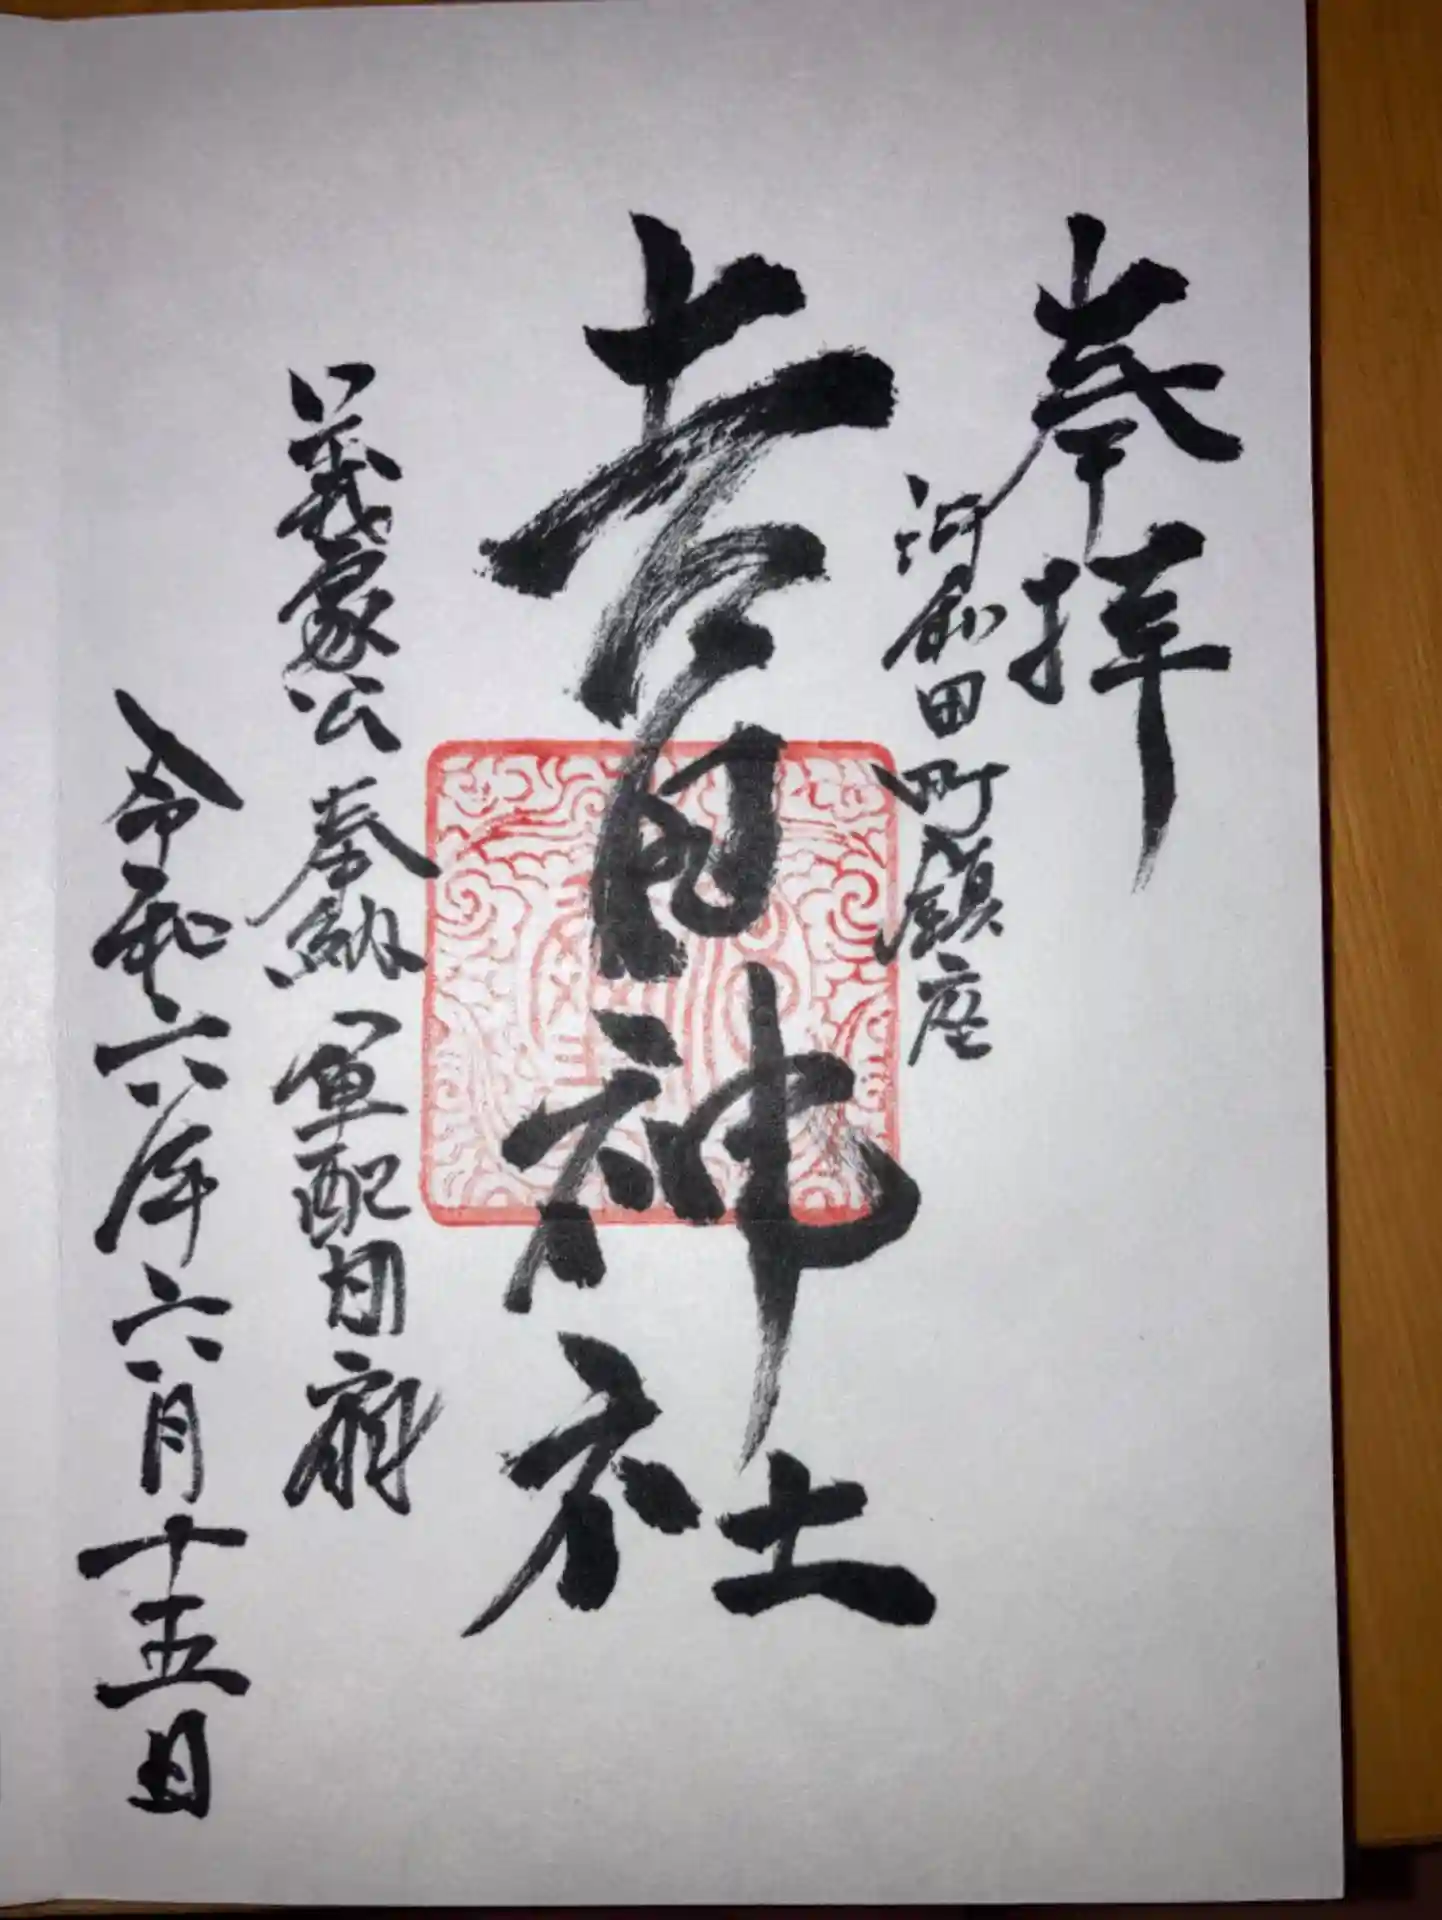 奉拝
河和田町鎮座
春日神社
義家公奉納軍配団扇
令和六年六月十五日